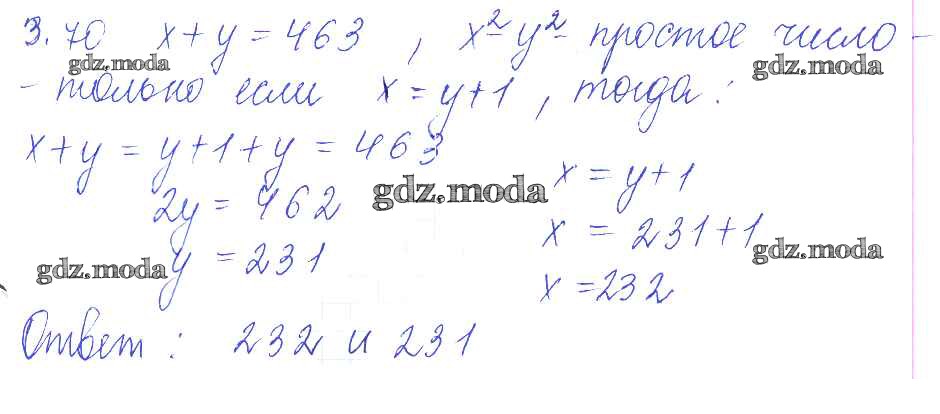 3.70 x + y = 463 , x² - y² - простое число -
gdz.moda gdz.moda
- только если x = y + 1 , тогда :
x + y = y + 1 + y = 463
gdz.moda x = y + 1
2y = 462
x = 231 + 1
gdz.moda y = 231 gdz.moda
x = 232
Ответ : 232 и 231